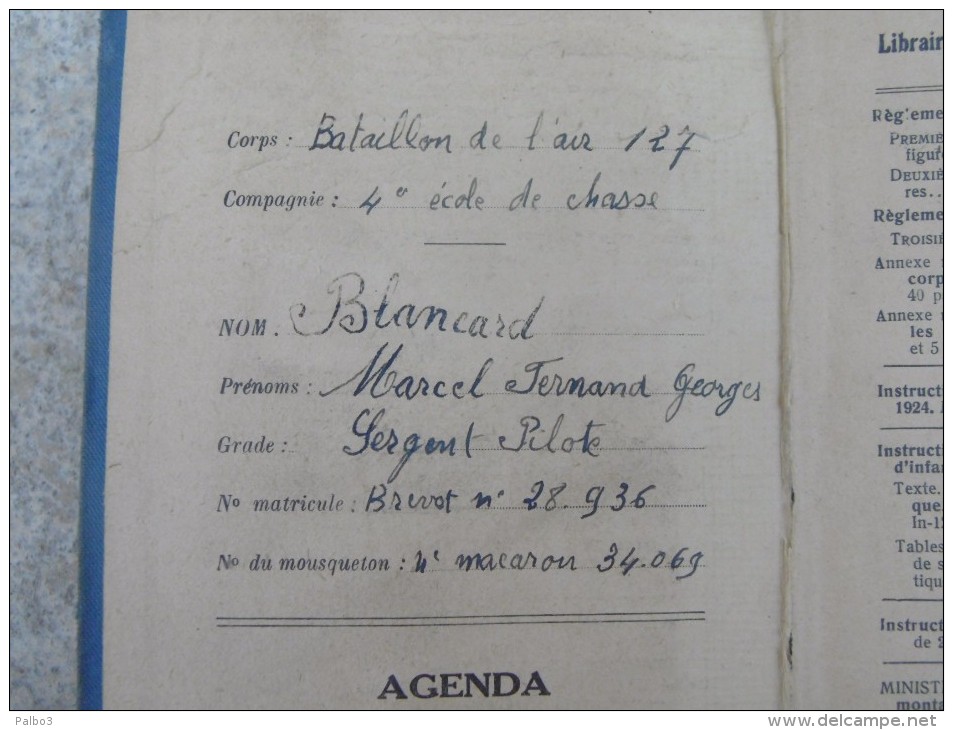 Corps : Bataillon de l'air 127
Compagnie : 4e école de chasse
NOM. Blancard
Prénoms : Marcel Fernand Georges
Grade : Sergent Pilote
No matricule : Brevet n° 28.936
No du mousqueton : n° macaron 34.069
AGENDA
Librair
Règleme
PREMIÈ
figur
DEUXIÈ
res...
Règleme
TROISIÈ
Annexe
corp
40 p
Annexe
les
et 5
Instruct
1924.
Instructi
d'infa
Texte.
que
In-12
Tables
de s
tiqu
Instruct
de 2
MINIST
montr
Palbo3
www.delcampe.net